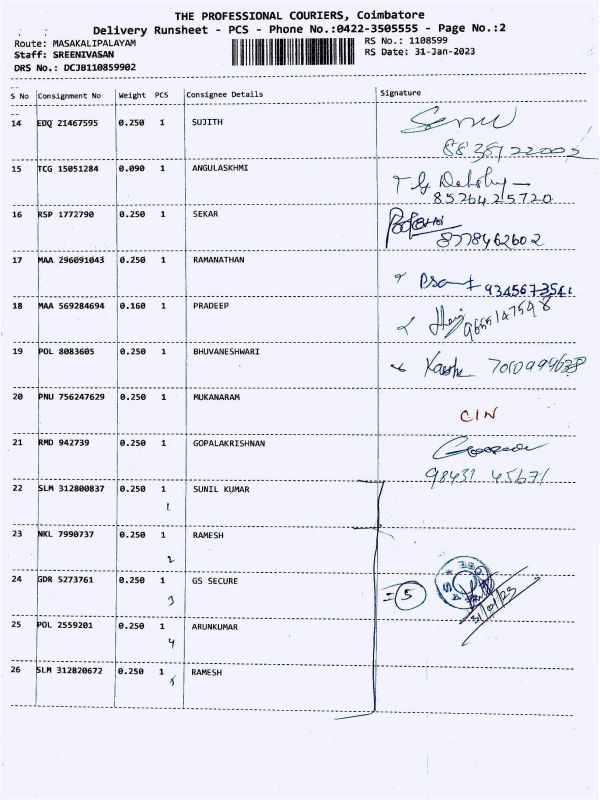 THE PROFESSIONAL COURIERS, Coimbatore
Delivery Runsheet - PCS - Phone No.:0422-3505555 - Page No.:2
Route: MASAKALIPALAYAM RS No.: 1108599
Staff: SREENIVASAN RS Date: 31-Jan-2023
DRS No.: DCJB110859902
S No Consignment No Weight PCS Consignee Details Signature
14 EDQ 21467595 0.250 1 SUJITH
15 TCG 15051284 0.090 1 ANGULASKHMI
8526425720
16 RSP 1772790 0.250 1 SEKAR
8778462602
17 MAA 296091043 0.250 1 RAMANATHAN
18 MAA 569284694 0.160 1 PRADEEP
19 POL 8083605 0.250 1 BHUVANESHWARI
20 PNU 756247629 0.250 1 MUKANARAM
CIN
21 RMD 942739 0.250 1 GOPALAKRISHNAN
98431 45671
22 SLM 312800837 0.250 1 SUNIL KUMAR
1
23 NKL 7990737 0.250 1 RAMESH
2
24 GDR 5273761 0.250 1 GS SECURE
3 = 5
31/01/23
25 POL 2559201 0.250 1 ARUNKUMAR
4
26 SLM 312820672 0.250 1 RAMESH
5